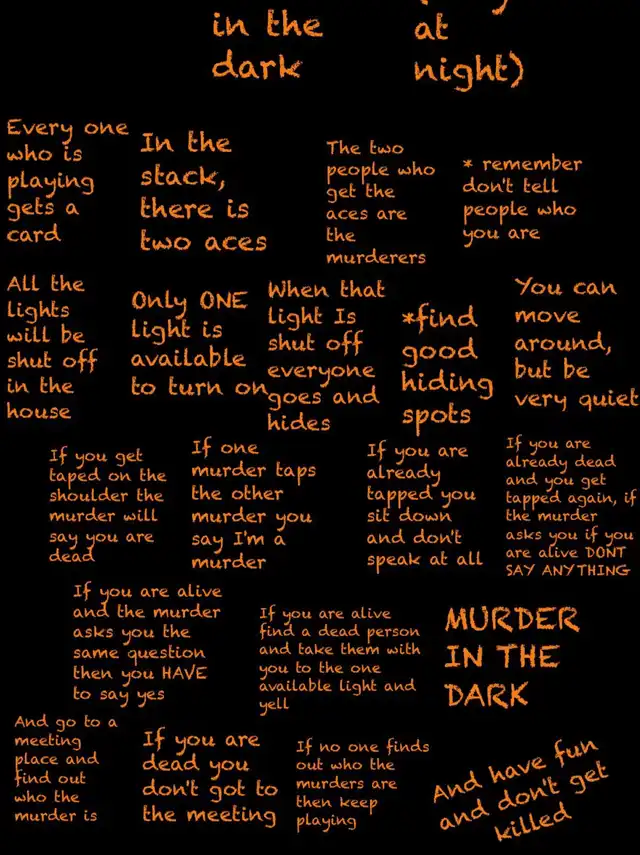 in the
dark
at
night)
Every one
who is
playing
gets a
card
In the
stack,
there is
two aces
The two
people who
get the
aces are
the
murderers
* remember
don't tell
people who
you are
All the
lights
will be
shut off
in the
house
Only ONE
light is
available
to turn on
When that
light Is
shut off
everyone
goes and
hides
*find
good
hiding
spots
You can
move
around,
but be
very quiet
If you get
taped on the
shoulder the
murder will
say you are
dead
If one
murder taps
the other
murder you
say I'm a
murder
If you are
already
tapped you
sit down
and don't
speak at all
If you are
already dead
and you get
tapped again, if
the murder
asks you if you
are alive DONT
SAY ANYTHING
If you are alive
and the murder
asks you the
same question
then you HAVE
to say yes
If you are alive
find a dead person
and take them with
you to the one
available light and
yell
MURDER
IN THE
DARK
And go to a
meeting
place and
find out
who the
murder is
If you are
dead you
don't got to
the meeting
If no one finds
out who the
murders are
then keep
playing
And have fun
and don't get
killed